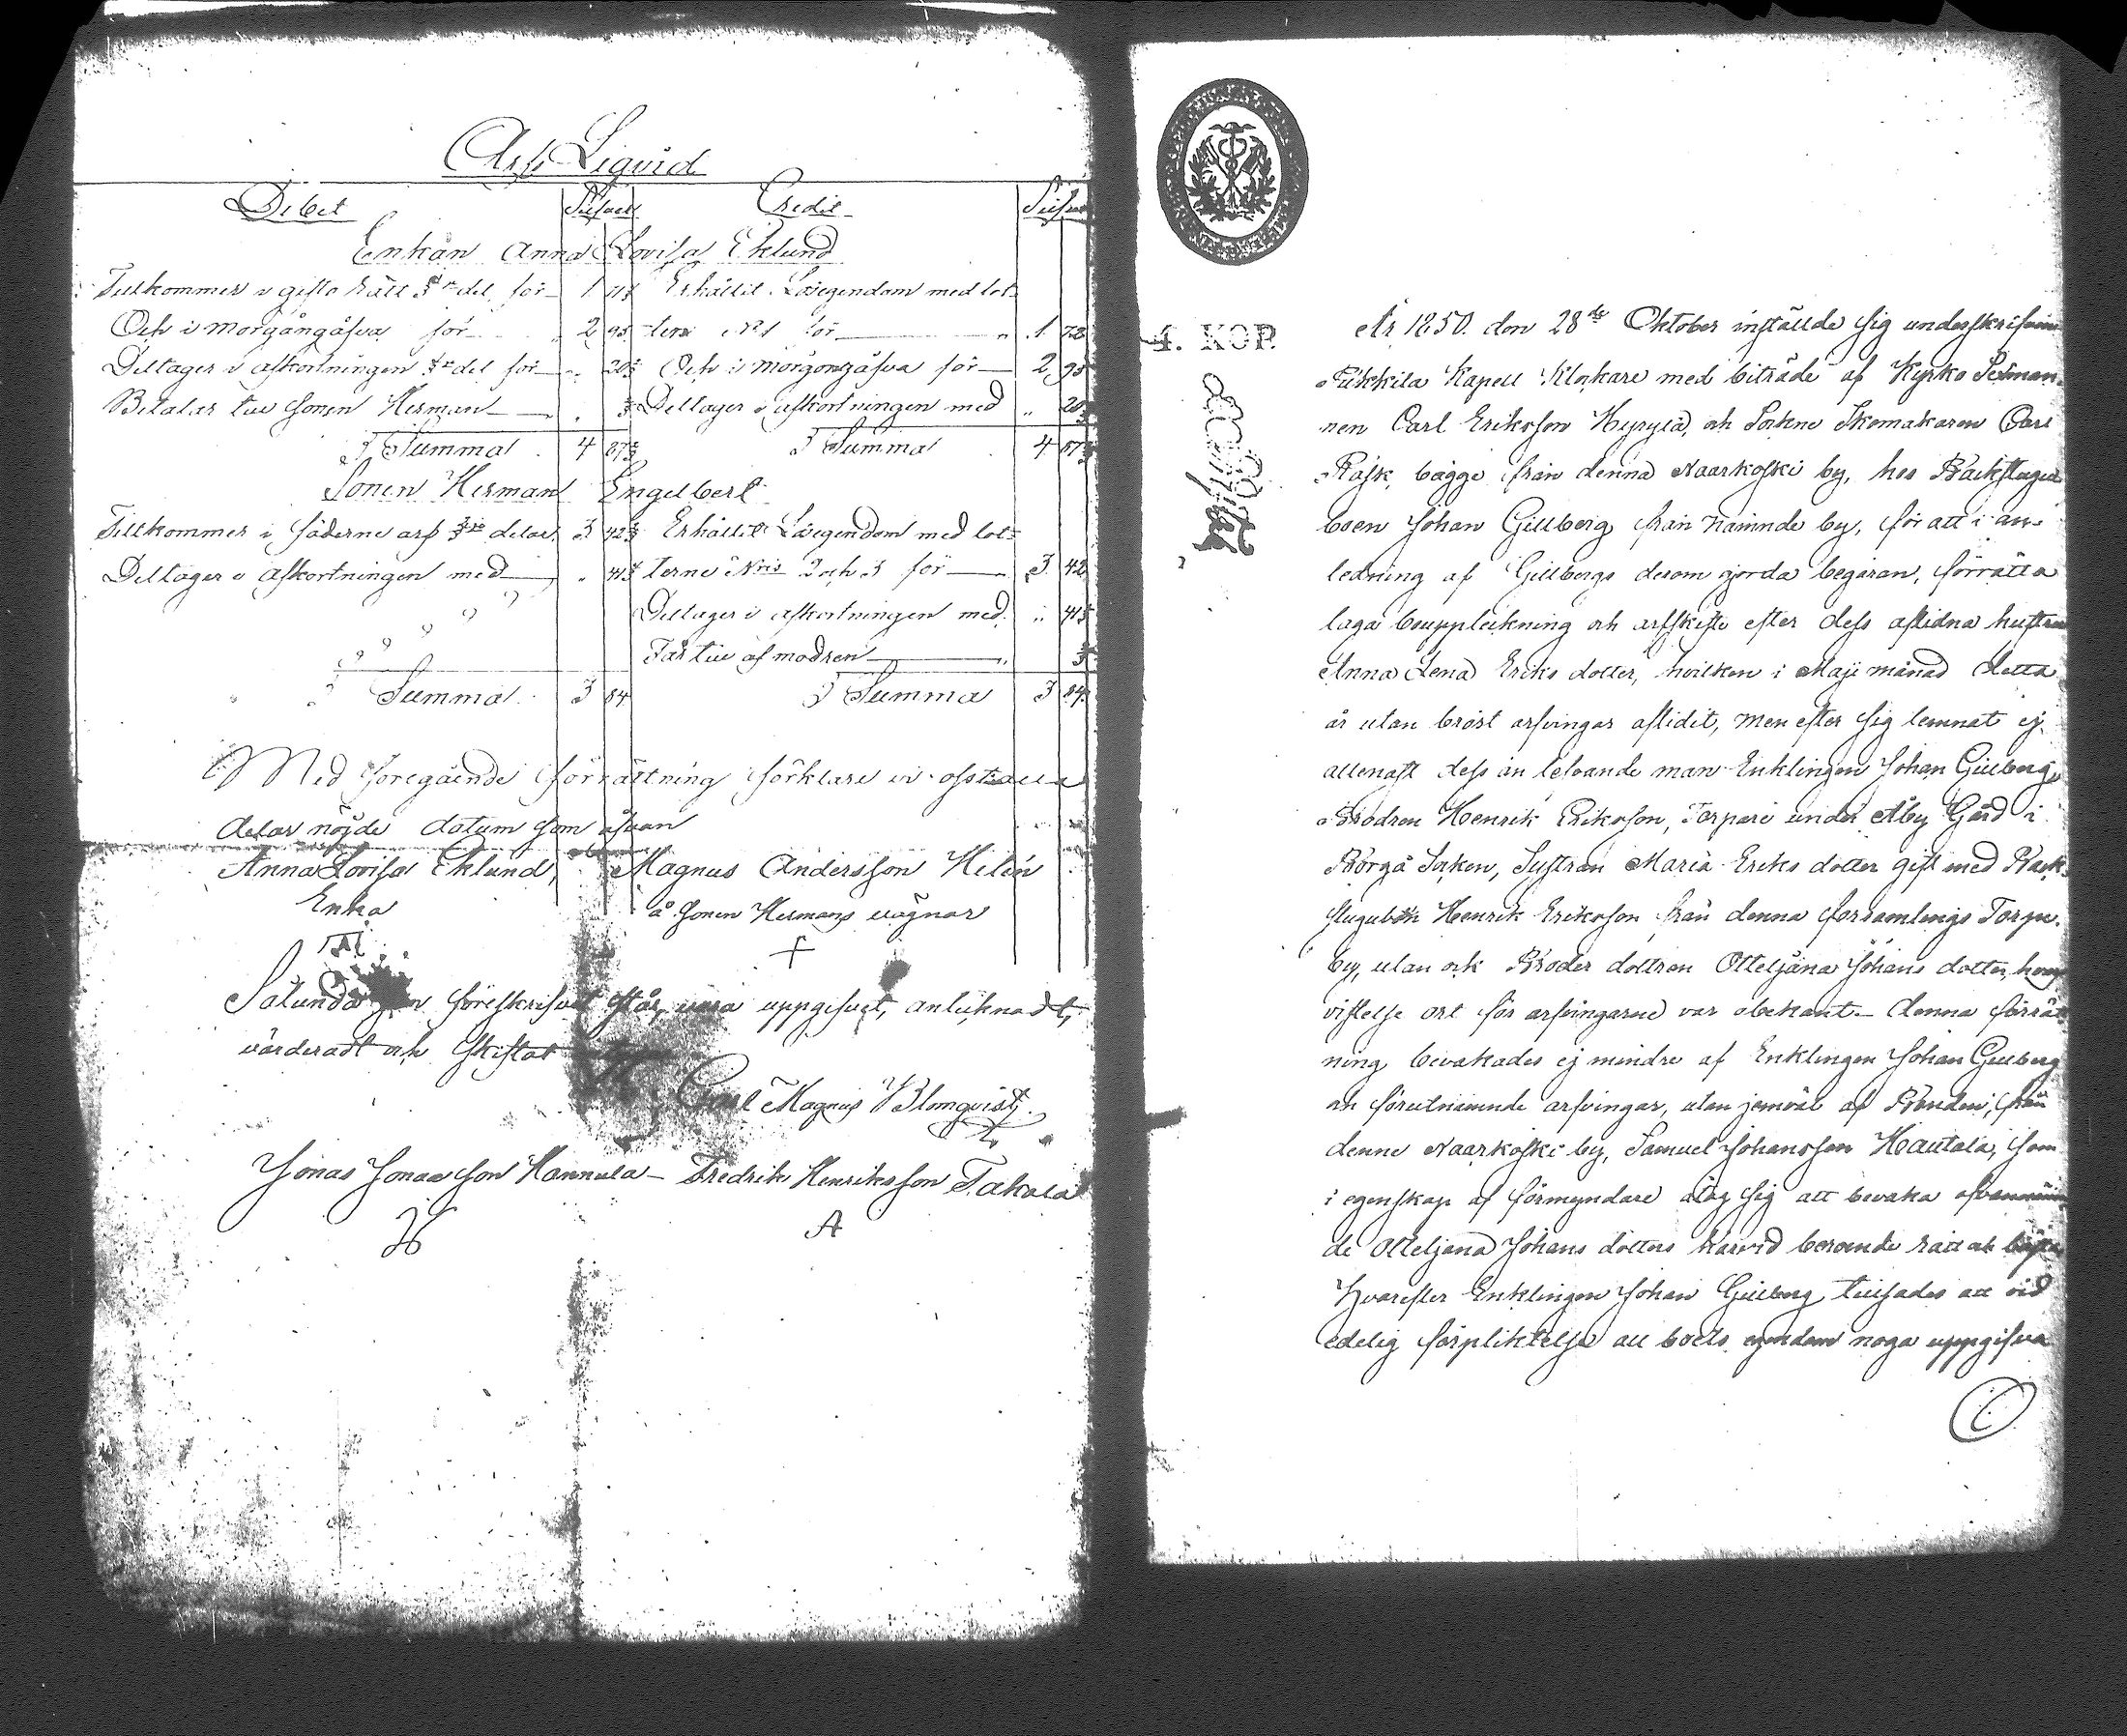 Arfs Liqvid
Debet Silfver Credit Silfver
Enkan Anna Lovisa Eklund
Tillkommer i gifto rätt del för 1 71 Erhållit Lösegendom med lot-
Och i morgångåfva för 2 95 tern No 1 för 1 72
Deltager i afkortningen del för " 20 Och i morgongåfva för 2 95
Betalar till sonen Herman " Deltager i afkortningen med " 20
Summa 4 87 Summa 4 87
Sonen Herman Engelbert
Tillkommer i fäderne arf delar 3 42 Erhållit Lösegendom med lot-
Deltager i afkortningen med " 41 terne Nris 2 och 3 för 3 42
Deltager i afkortningen med " 41
Får till af modren "
Summa 3 84 Summa 3 84
Med föregående förrättning förklare vi oss alla
delar nöjde datum som ofvan
Anna Lovisa Eklund, Magnus Andersson Helén
Enka å sonen Hermans vägnar
Sålunda föreskrifvet står, vara uppgifvet, anteknadt,
värderadt och skiftat
Carl Magnus Blomqvist
Jonas Jonasson Hannula - Fredrik Henriksson Takala
H A
4. KOP.
År 1850. den 28de Oktober inställde sig underskrifven
Pukkila Kapell Klockare med biträde af Kyrko Sexman-
nen Carl Eriksson Hyrylä, och Sockne Skomakaren Carl
Rask, bägge från denna Naarkoski by, hos Backstugu
boen Johan Gillberg från nämnde by, för att i an-
ledning af Gillbergs derom gjorda begäran, förrätta
laga bouppteckning och arfskifte efter dess aflidna hustru
Anna Lena Eriks dotter, hvilken i Maji månad detta
år utan bröst arfvingar aflidit, men efter sig lemnat ej
allenast dess än lefvande man Enklingen Johan Gillberg,
Brodren Henrik Eriksson, Torpare under Åby Gård i
Borgå Socken, Systran Maria Eriks dotter gift med Back-
stugubon Henrik Eriksson från denna församlings Torpp-
by, utan ock Broder dottren Otteljana Johans dotter, hvars
vistelse ort för arfvingarne var obekant. Denna förrätt
ning bevakades ej mindre af Enklingen Johan Gillberg
än förutnämnde arfvingar, utan jemväl af Bonden, från
denne Naarkoski by, Samuel Johansson Hautala, som
i egenskap af förmyndare åtog sig att bevaka ofvannämn
de Otteljana Johans dotters härvid beroende rätt och bästa
Hvarefter Enklingen Johan Gillberg tillsades att vid
edelig förpliktelse all boets egendom noga uppgifva